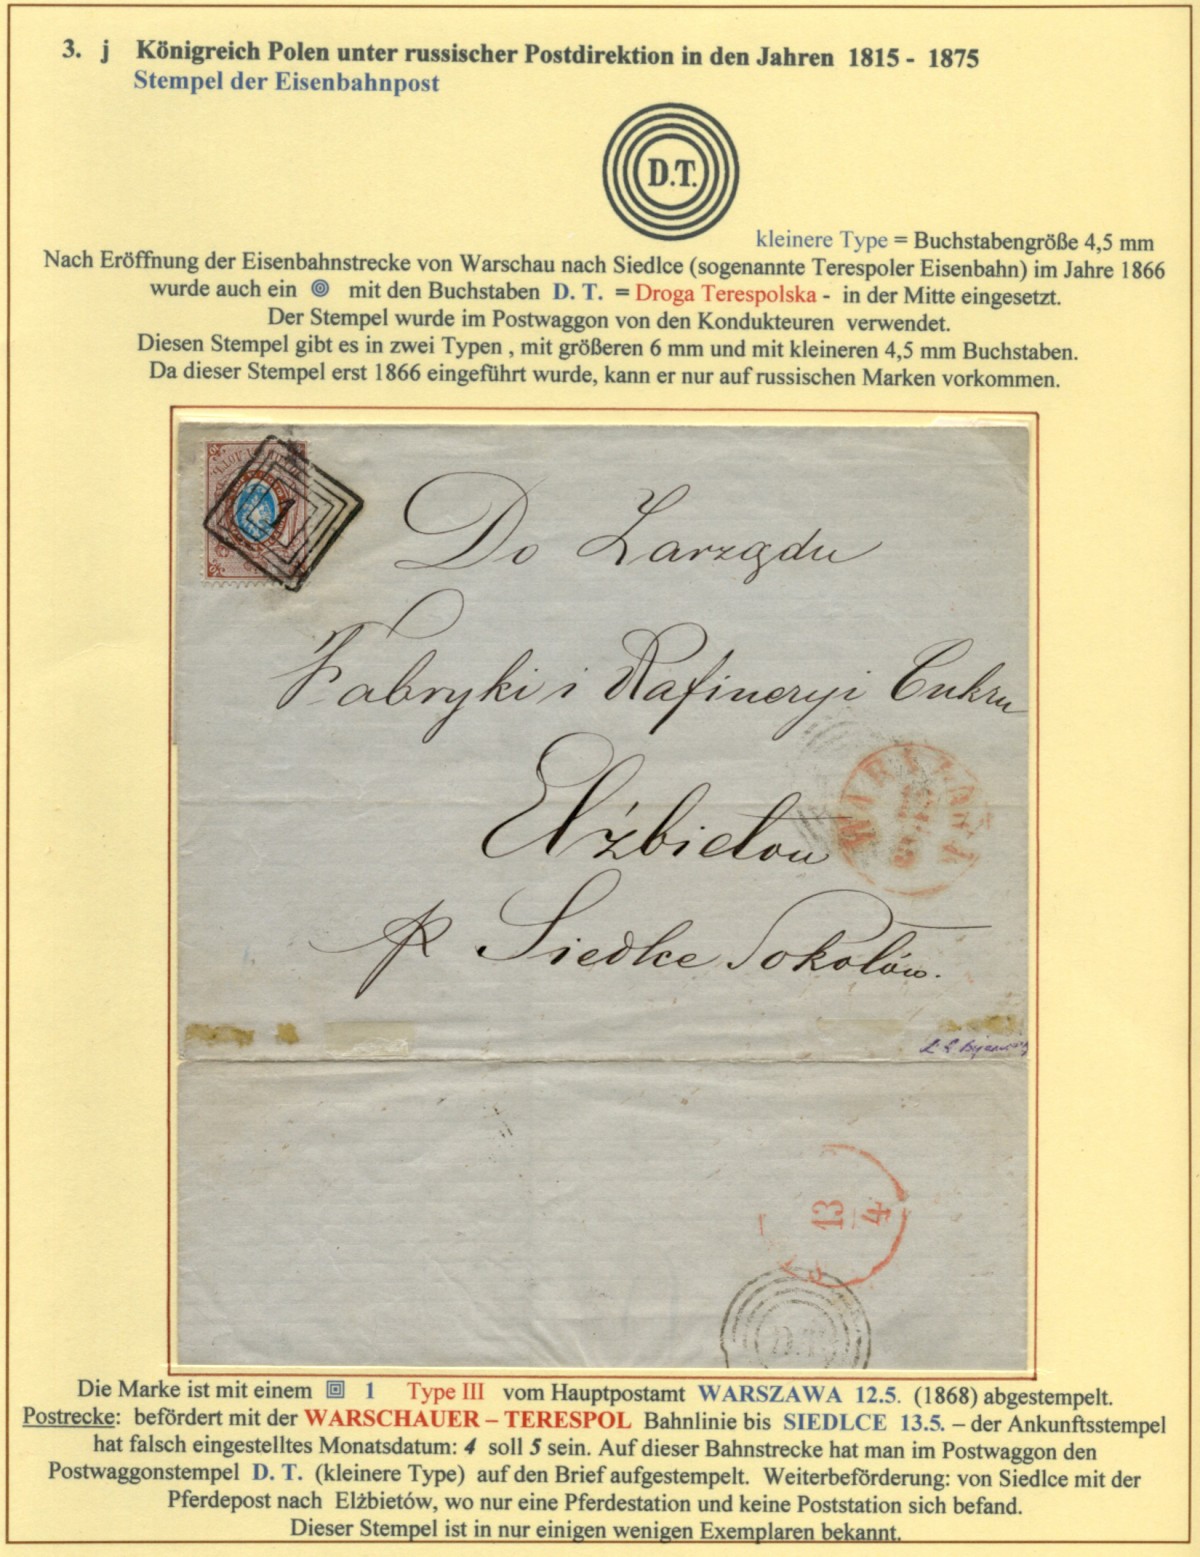 3. j Königreich Polen unter russischer Postdirektion in den Jahren 1815 - 1875
Stempel der Eisenbahnpost
D.T.
kleinere Type = Buchstabengröße 4,5 mm
Nach Eröffnung der Eisenbahnstrecke von Warschau nach Siedlce (sogenannte Terespoler Eisenbahn) im Jahre 1866
wurde auch ein mit den Buchstaben D. T. = Droga Terespolska - in der Mitte eingesetzt.
Der Stempel wurde im Postwaggon von den Kondukteuren verwendet.
Diesen Stempel gibt es in zwei Typen , mit größeren 6 mm und mit kleineren 4,5 mm Buchstaben.
Da dieser Stempel erst 1866 eingeführt wurde, kann er nur auf russischen Marken vorkommen.
1
Do Zarządu
Fabryki i Rafineryi Cukru
Elżbietów
p. Siedlce Sokołów.
13
4
D.T.
Die Marke ist mit einem 1 Type III vom Hauptpostamt WARSZAWA 12.5. (1868) abgestempelt.
Postrecke: befördert mit der WARSCHAUER – TERESPOL Bahnlinie bis SIEDLCE 13.5. – der Ankunftsstempel
hat falsch eingestelltes Monatsdatum: 4 soll 5 sein. Auf dieser Bahnstrecke hat man im Postwaggon den
Postwaggonstempel D. T. (kleinere Type) auf den Brief aufgestempelt. Weiterbeförderung: von Siedlce mit der
Pferdepost nach Elżbietów, wo nur eine Pferdestation und keine Poststation sich befand.
Dieser Stempel ist in nur einigen wenigen Exemplaren bekannt.